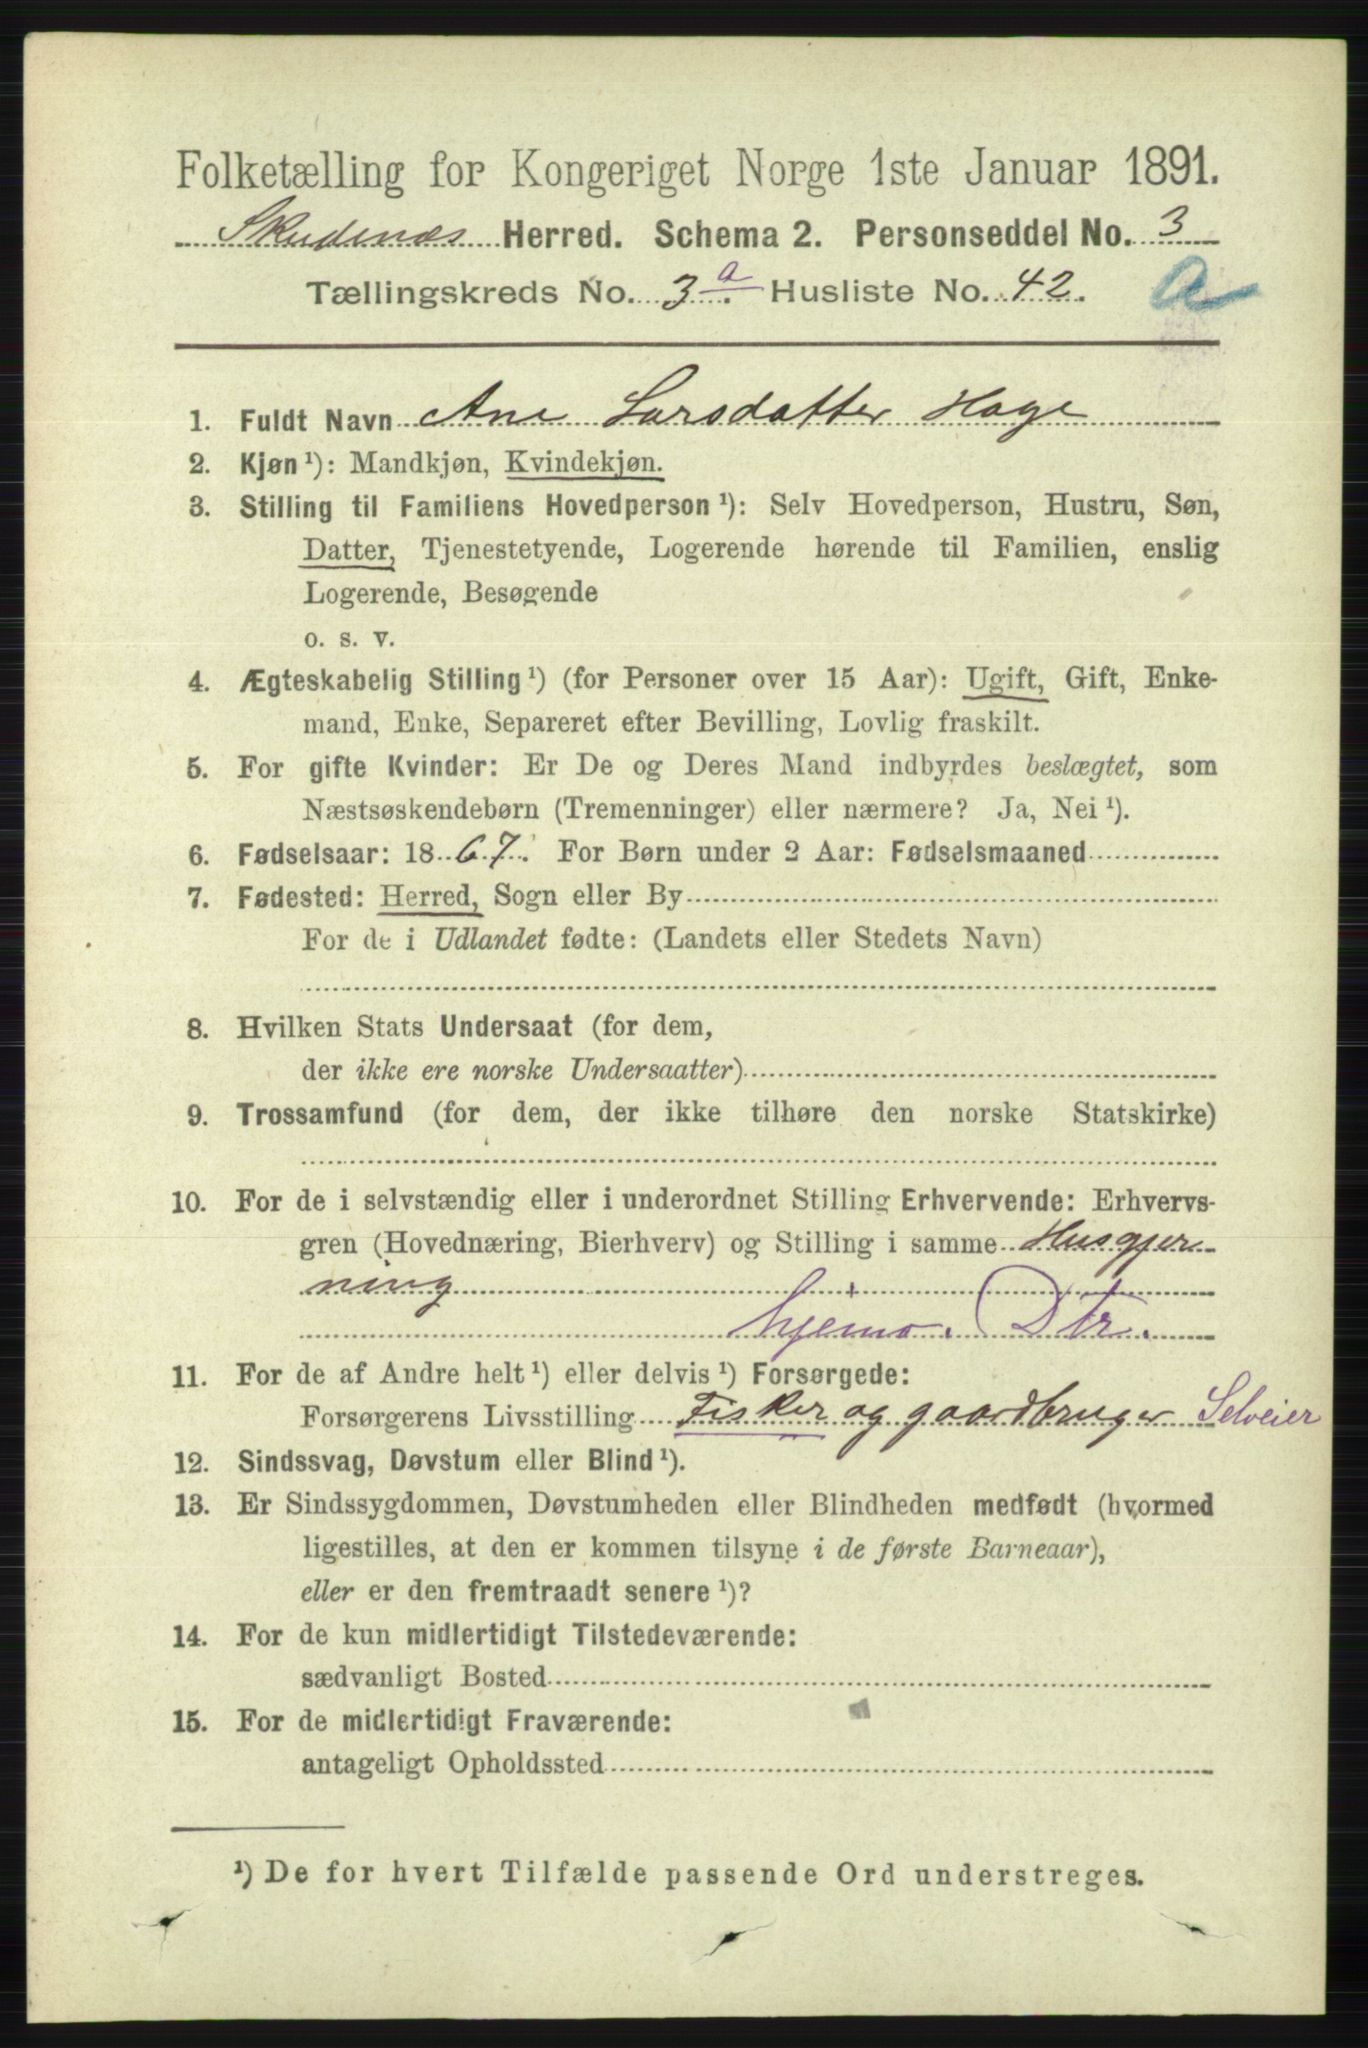 Folketælling for Kongeriget Norge 1ste Januar 1891.
Skudenæs Herred. Schema 2. Personseddel No. 3
Tællingskreds No. 3 a. Husliste No. 42. a
1. Fuldt Navn Ane Larsdatter Hage
2. Kjøn ¹): Mandkjøn, Kvindekjøn.
3. Stilling til Familiens Hovedperson ¹): Selv Hovedperson, Hustru, Søn,
Datter, Tjenestetyende, Logerende hørende til Familien, enslig
Logerende, Besøgende
o. s. v.
4. Ægteskabelig Stilling ¹) (for Personer over 15 Aar): Ugift, Gift, Enke-
mand, Enke, Separeret efter Bevilling, Lovlig fraskilt.
5. For gifte Kvinder: Er De og Deres Mand indbyrdes beslægtet, som
Næstsøskendebørn (Tremenninger) eller nærmere? Ja, Nei ¹).
6. Fødselsaar: 1867. For Børn under 2 Aar: Fødselsmaaned
7. Fødested: Herred, Sogn eller By
For de i Udlandet fødte: (Landets eller Stedets Navn)
8. Hvilken Stats Undersaat (for dem,
der ikke ere norske Undersaatter)
9. Trossamfund (for dem, der ikke tilhøre den norske Statskirke)
10. For de i selvstændig eller i underordnet Stilling Erhvervende: Erhvervs-
gren (Hovednæring, Bierhverv) og Stilling i samme Husgjer-
ning
hjema. Dtr.
11. For de af Andre helt ¹) eller delvis ¹) Forsørgede:
Forsørgerens Livsstilling Fisker og gaardbruger Selveier
12. Sindssvag, Døvstum eller Blind ¹).
13. Er Sindssygdommen, Døvstumheden eller Blindheden medfødt (hvormed
ligestilles, at den er kommen tilsyne i de første Barneaar),
eller er den fremtraadt senere ¹)?
14. For de kun midlertidigt Tilstedeværende:
sædvanligt Bosted
15. For de midlertidigt Fraværende:
antageligt Opholdssted
¹) De for hvert Tilfælde passende Ord understreges.